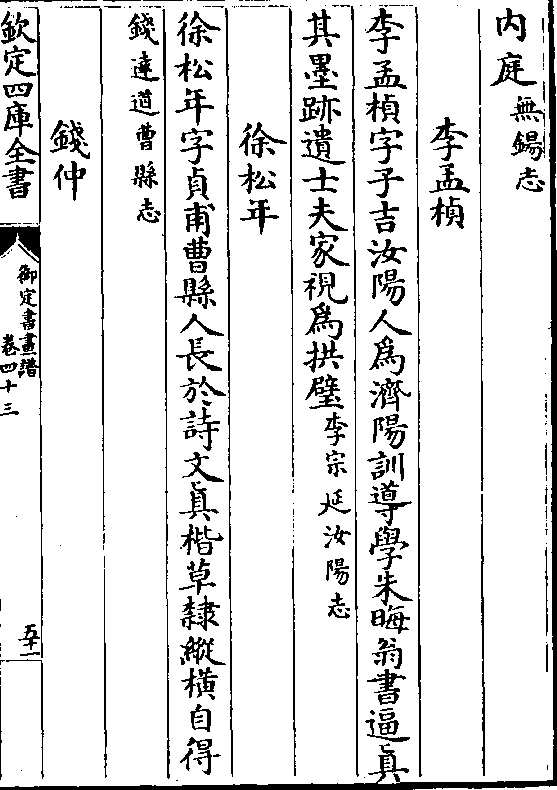 内庭無錫志
李孟楨
李孟楨字子吉汝陽人為濟陽訓導學朱晦翁書逼真
其墨跡遺士夫家視為拱璧李宗延汝陽志
徐松年
徐松年字貞甫曹縣人長於詩文真楷草隸縱橫自得
錢達道曹縣志
錢仲
欽定四庫全書
御定書畫譜
卷四十三
五十一